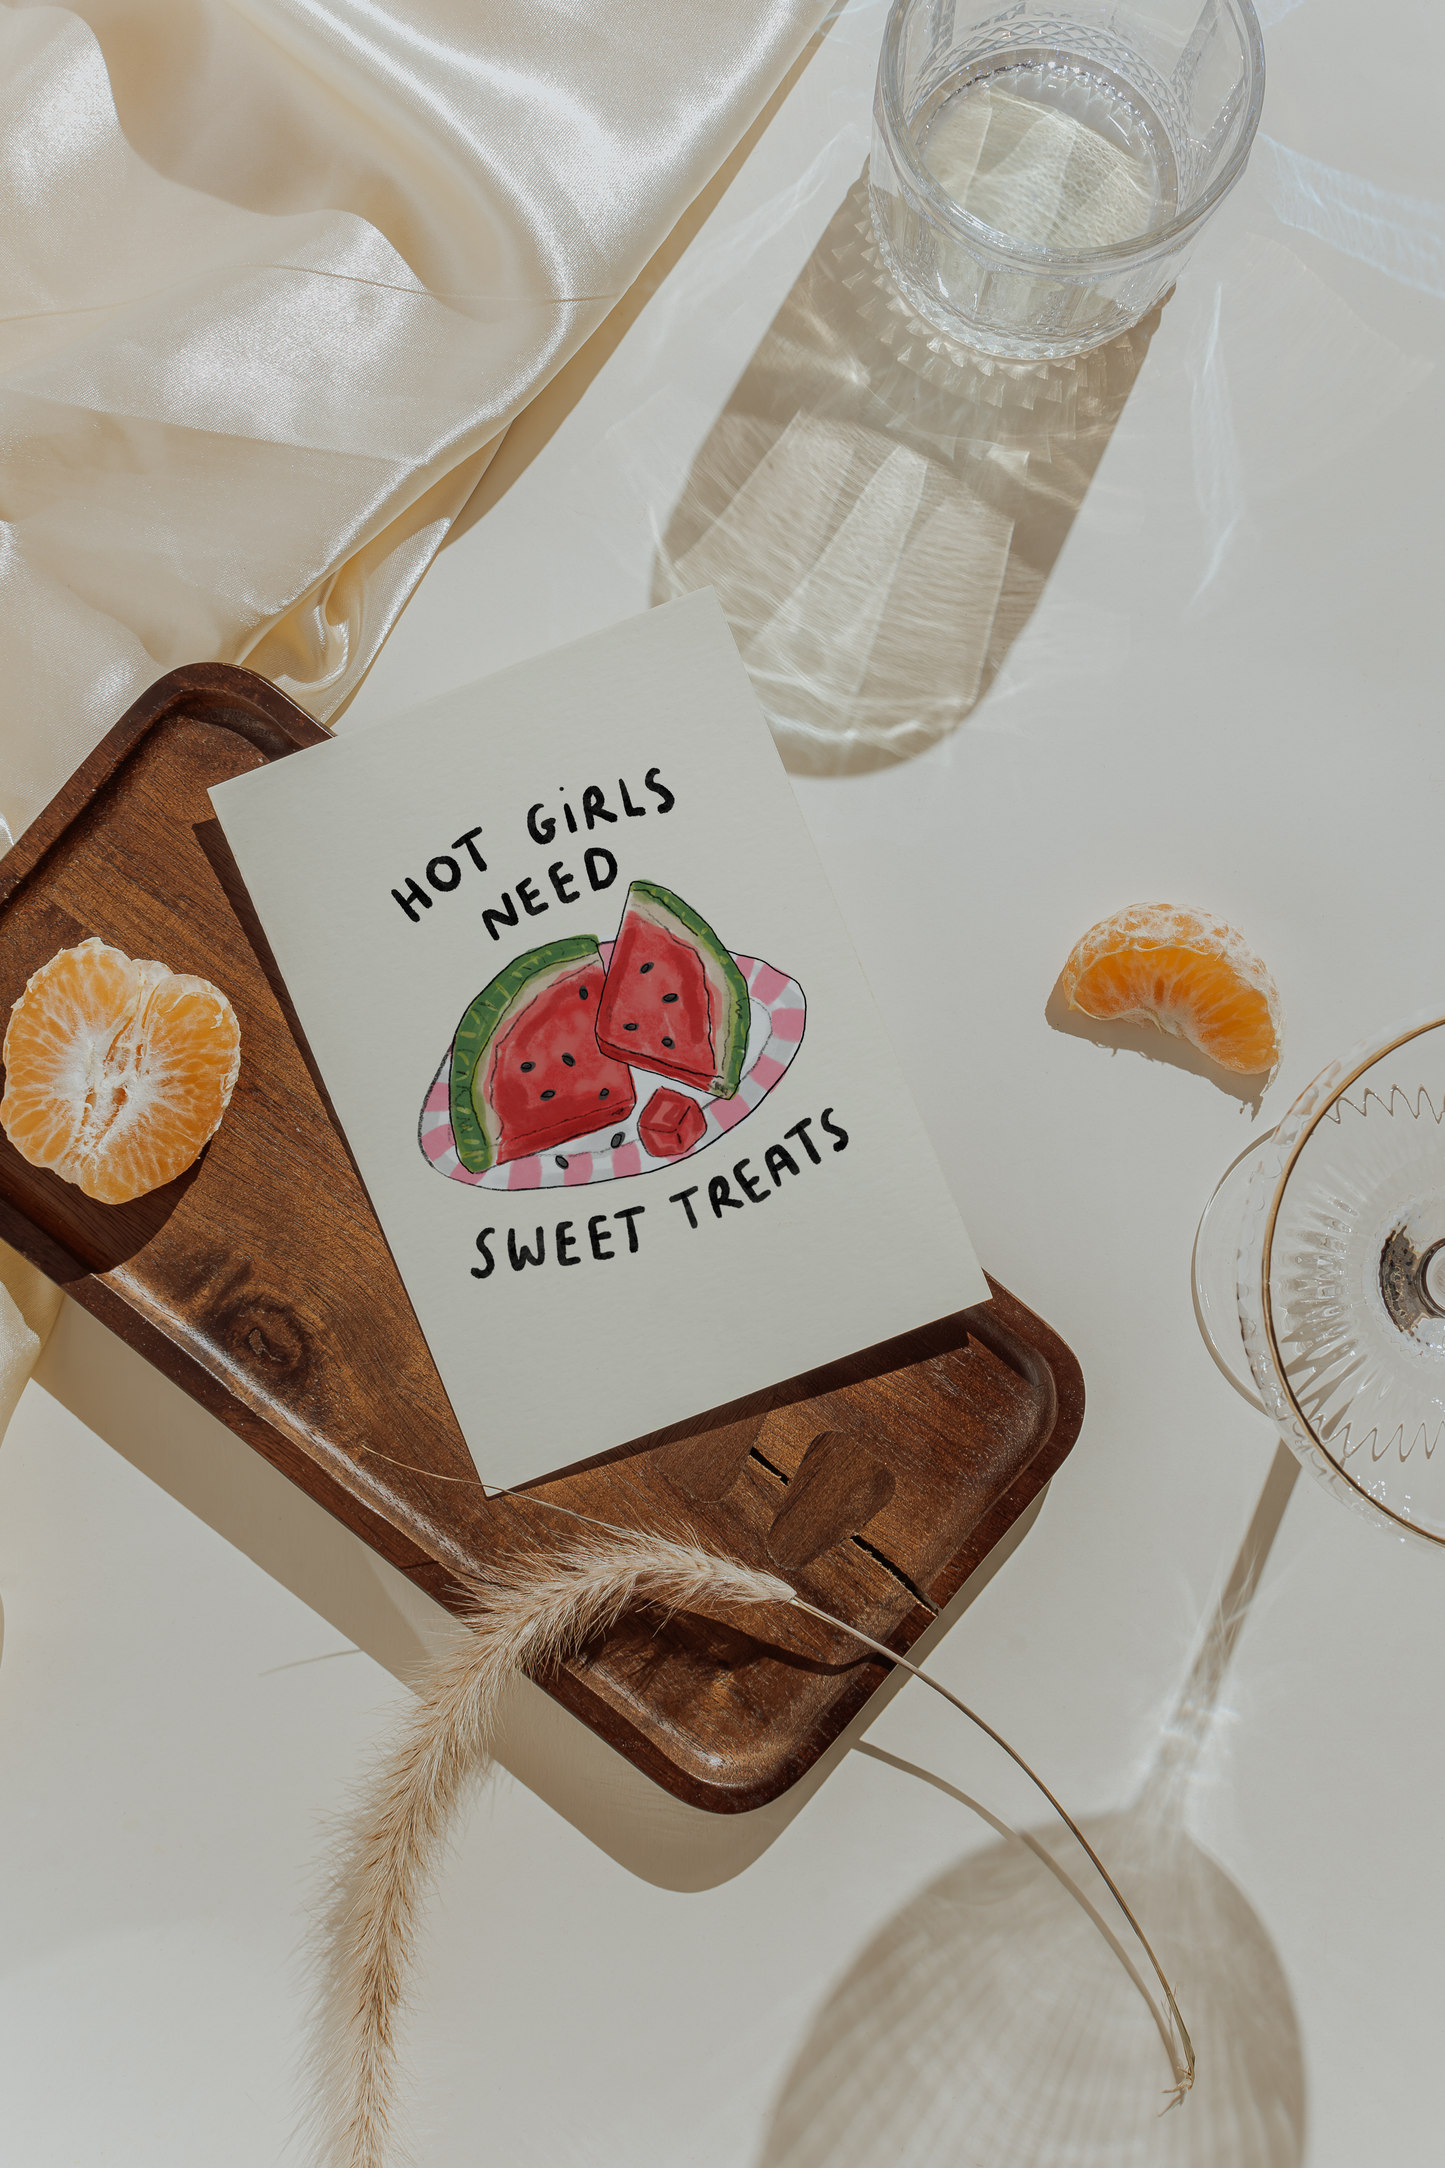 HOT GiRLS
NEED
SWEET TREATS